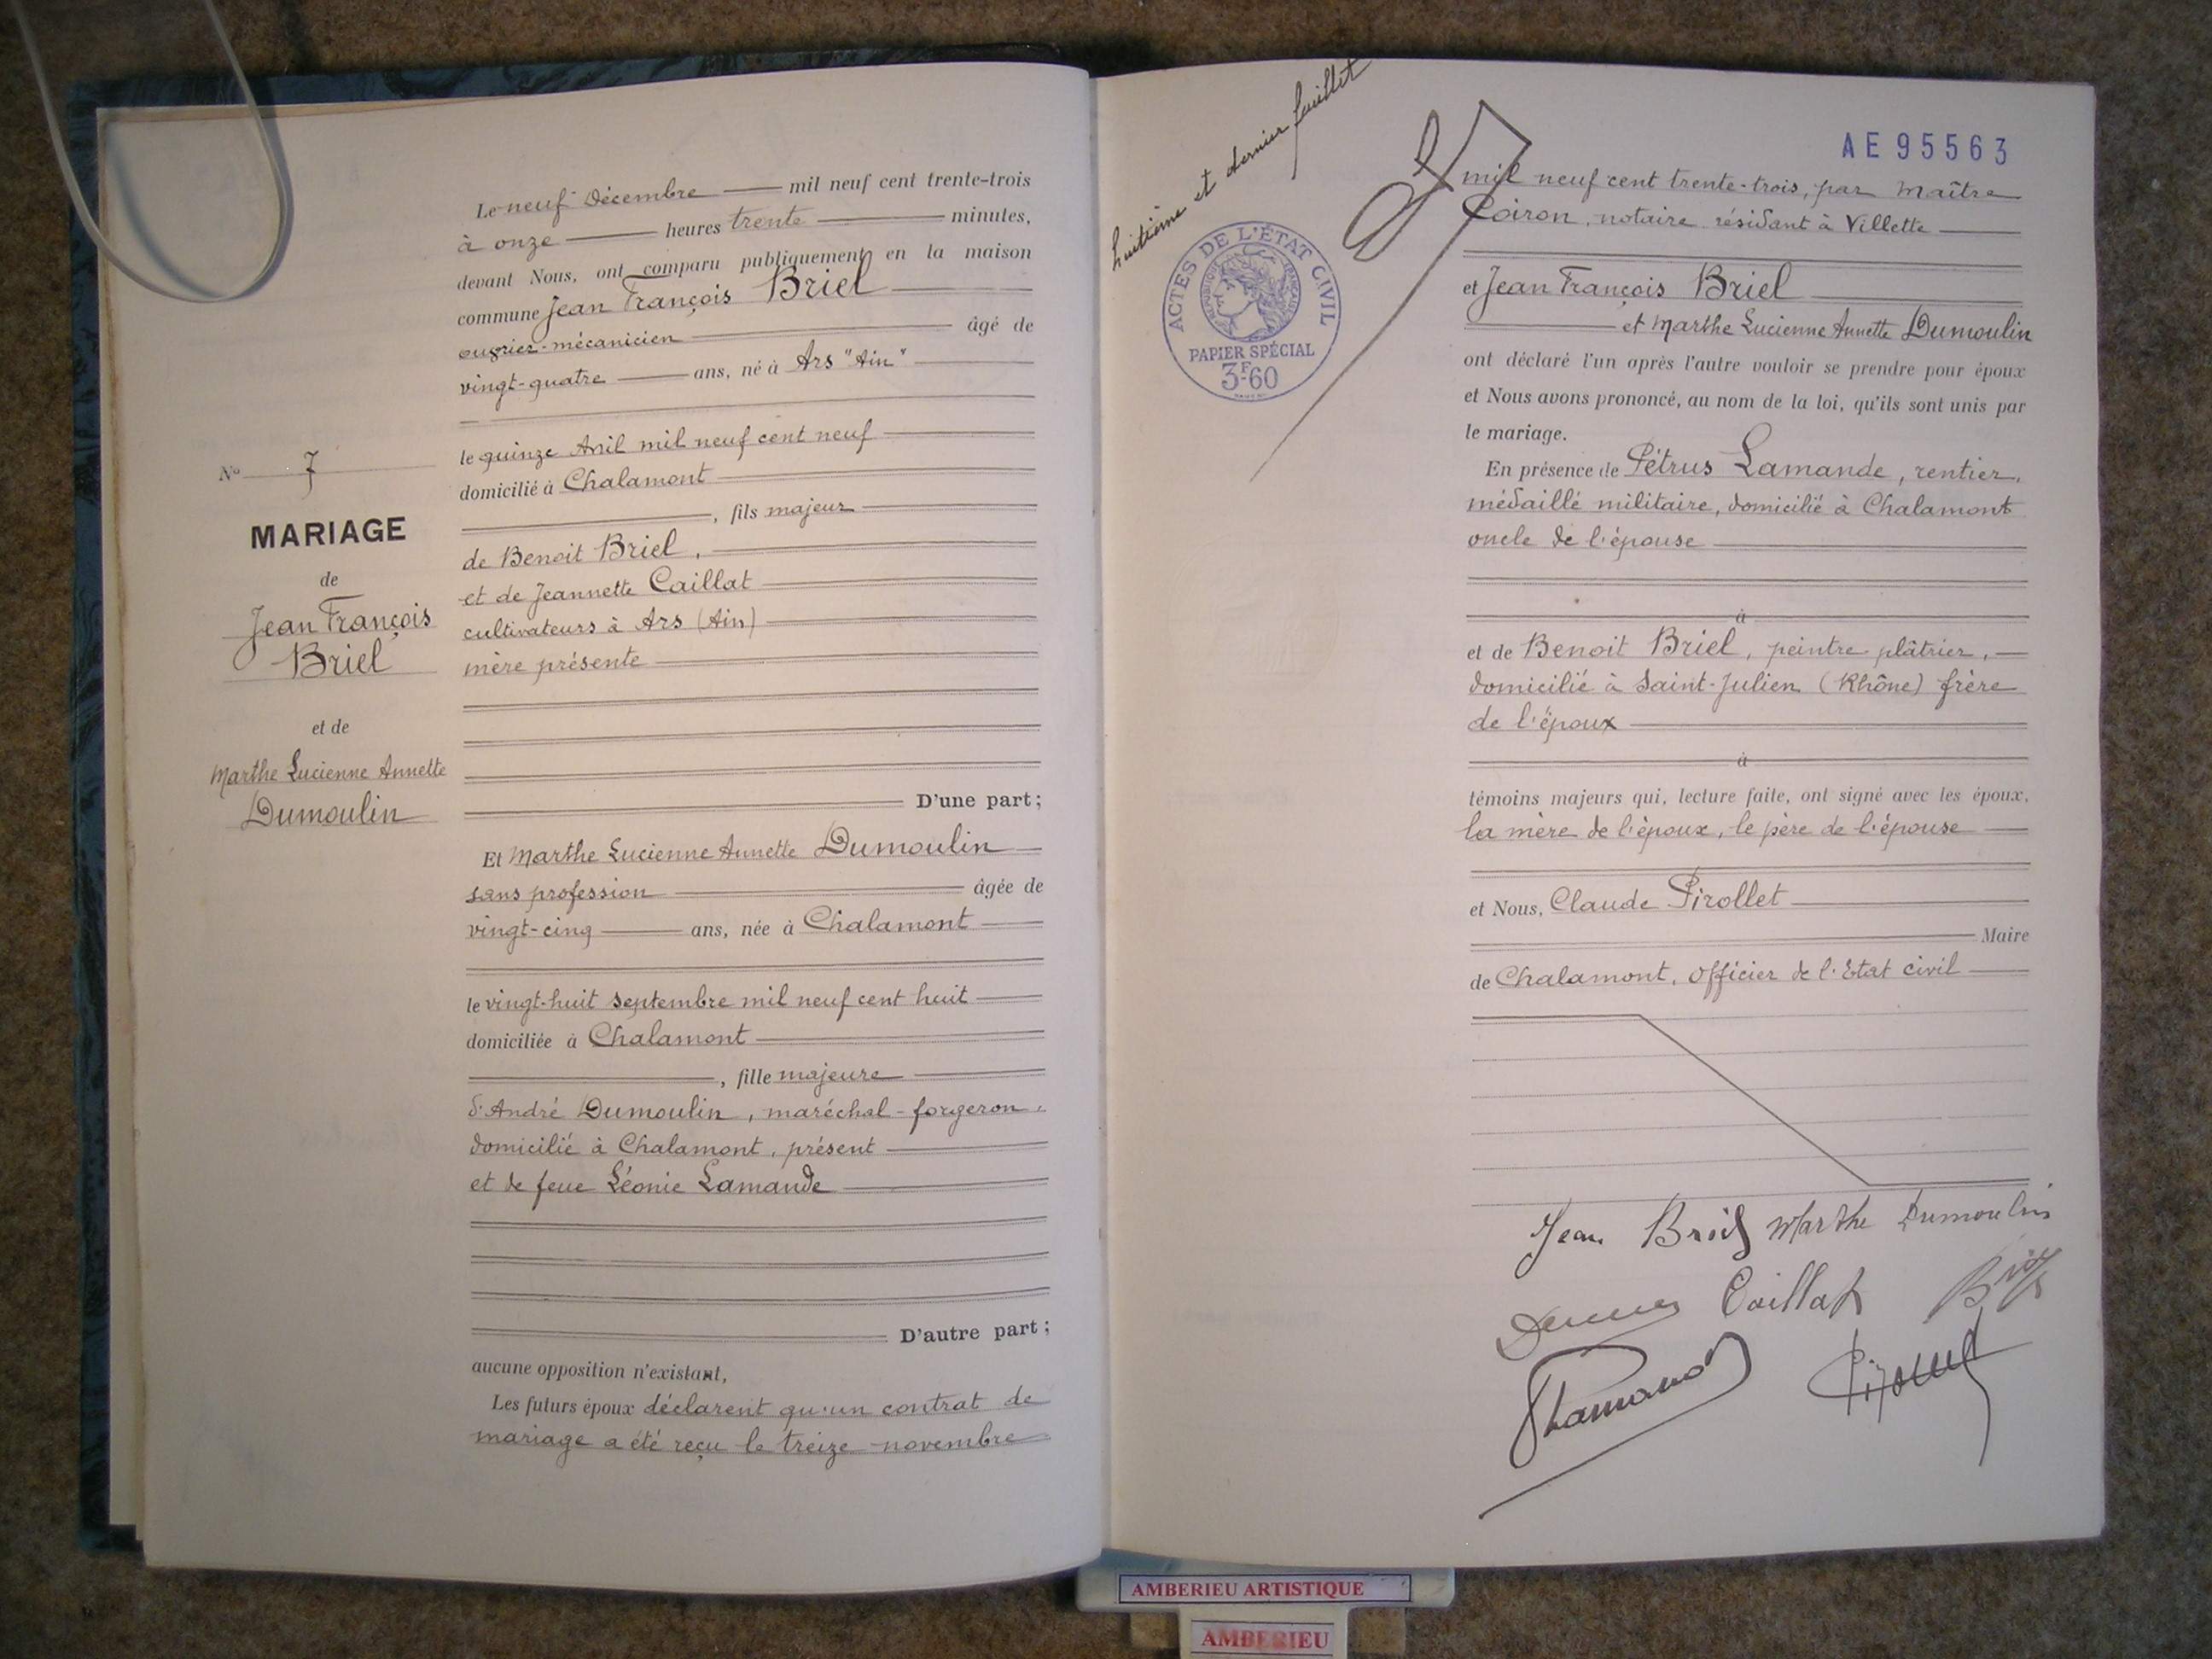 Le neuf Décembre mil neuf cent trente-trois
à onze heures trente minutes,
devant Nous, ont comparu publiquement en la maison
commune Jean François Briel
ouvrier-mécanicien âgé de
vingt-quatre ans, né à Ars "Ain"
le quinze Avril mil neuf cent neuf
domicilié à Chalamont
, fils majeur
de Benoit Briel,
et de Jeannette Caillat
cultivateurs à Ars (Ain)
mère présente
D'une part;
Et Marthe Lucienne Annette Dumoulin
sans profession âgée de
vingt-cinq ans, née à Chalamont
le vingt-huit septembre mil neuf cent huit
domiciliée à Chalamont
, fille majeure
d'André Dumoulin, maréchal-forgeron,
domicilié à Chalamont, présent
et de feue Léonie Lamande
D'autre part;
aucune opposition n'existant,
Les futurs époux déclarent qu'un contrat de
mariage a été reçu le treize novembre
No 7
MARIAGE
de
Jean François
Briel
et de
Marthe Lucienne Annette
Dumoulin
huitième et dernier feuillet
ACTES DE L'ÉTAT CIVIL
RÉPUBLIQUE FRANÇAISE
PAPIER SPÉCIAL
3F60
AE 95563
mil neuf cent trente-trois, par Maître
Coiron, notaire résidant à Villette
et Jean François Briel
et Marthe Lucienne Annette Dumoulin
ont déclaré l'un après l'autre vouloir se prendre pour époux
et Nous avons prononcé, au nom de la loi, qu'ils sont unis par
le mariage.
En présence de Pétrus Lamande, rentier,
médaillé militaire, domicilié à Chalamont
oncle de l'épouse
à
et de Benoit Briel, peintre plâtrier,
domicilié à Saint-Julien (Rhône) frère
de l'époux
à
témoins majeurs qui, lecture faite, ont signé avec les époux,
la mère de l'époux, le père de l'épouse
et Nous, Claude Pirollet
Maire
de Chalamont, Officier de l'Etat civil
Jean Briel Marthe Dumoulin
Caillat Briel
AMBERIEU ARTISTIQUE
AMBERIEU